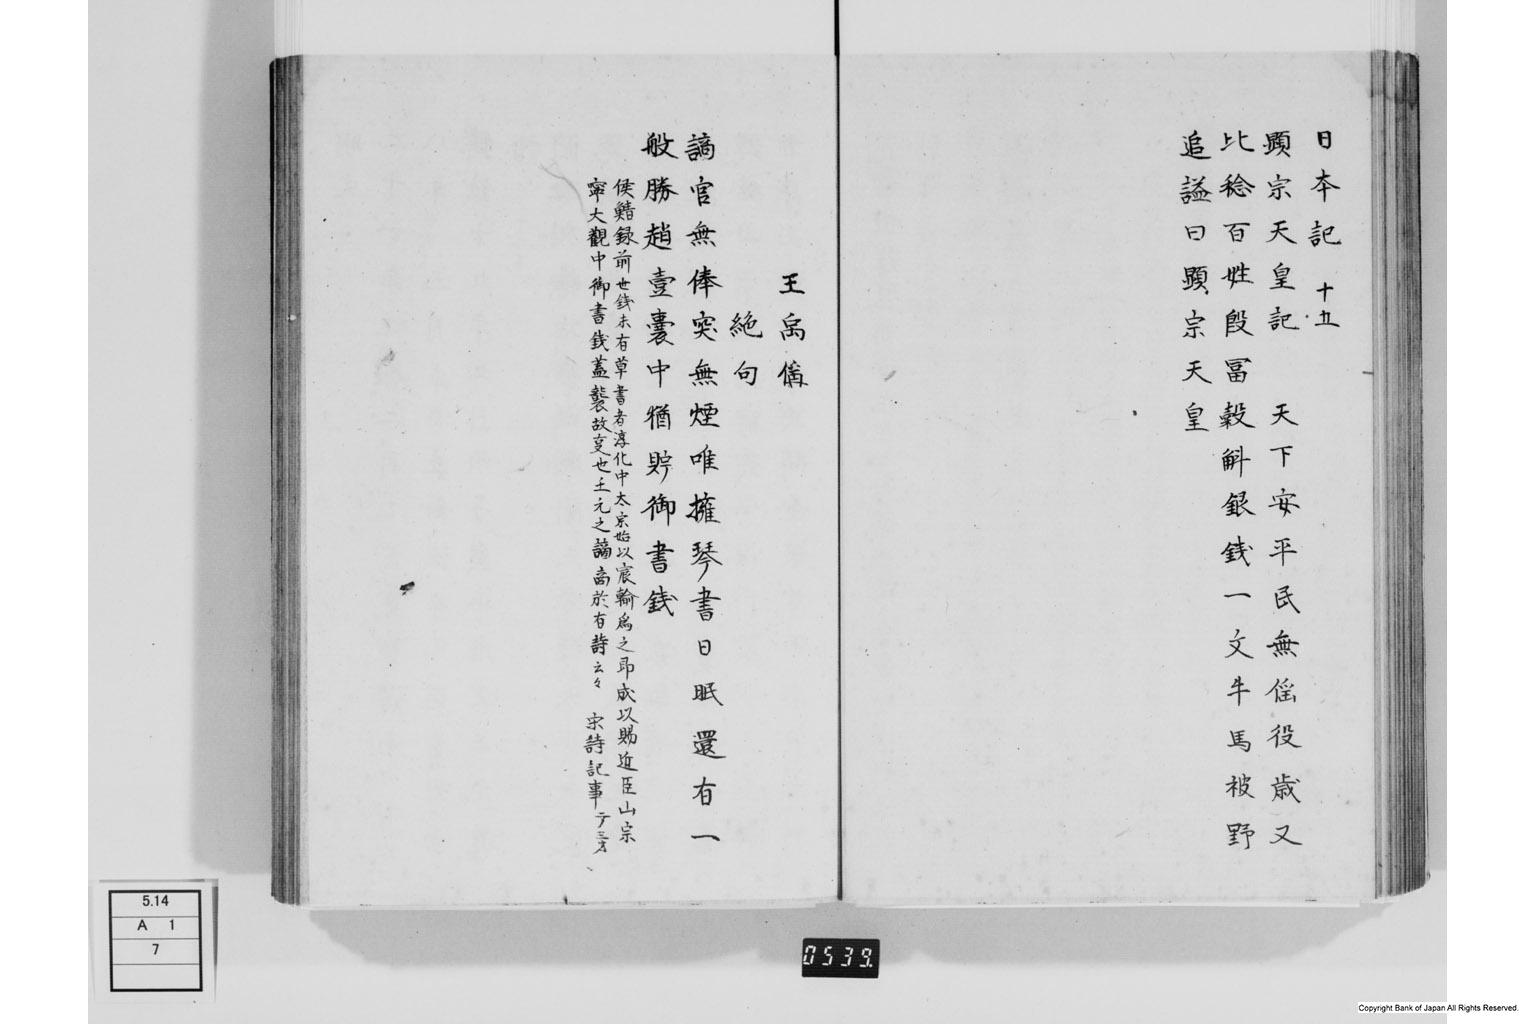 日本記 十五
顕宗天皇記 天下安平民無徭役歳又
比稔百姓殷冨穀斛銀銭一文牛馬被野
追謚曰顕宗天皇
王禹偁
絶句
謫官無俸突無煙唯擁琴書日眠還有一
般勝趙壹囊中猶貯御書銭
侯鯖録前世銭未有草書者淳化中太宗始以宸翰為之即成以賜近臣山宗
寧大觀中御書銭蓋襲故支也王元之謫商於有詩云々 宋詩記事
5.14
A 1
7
0539.
Copyright Bank of Japan All Rights Reserved.